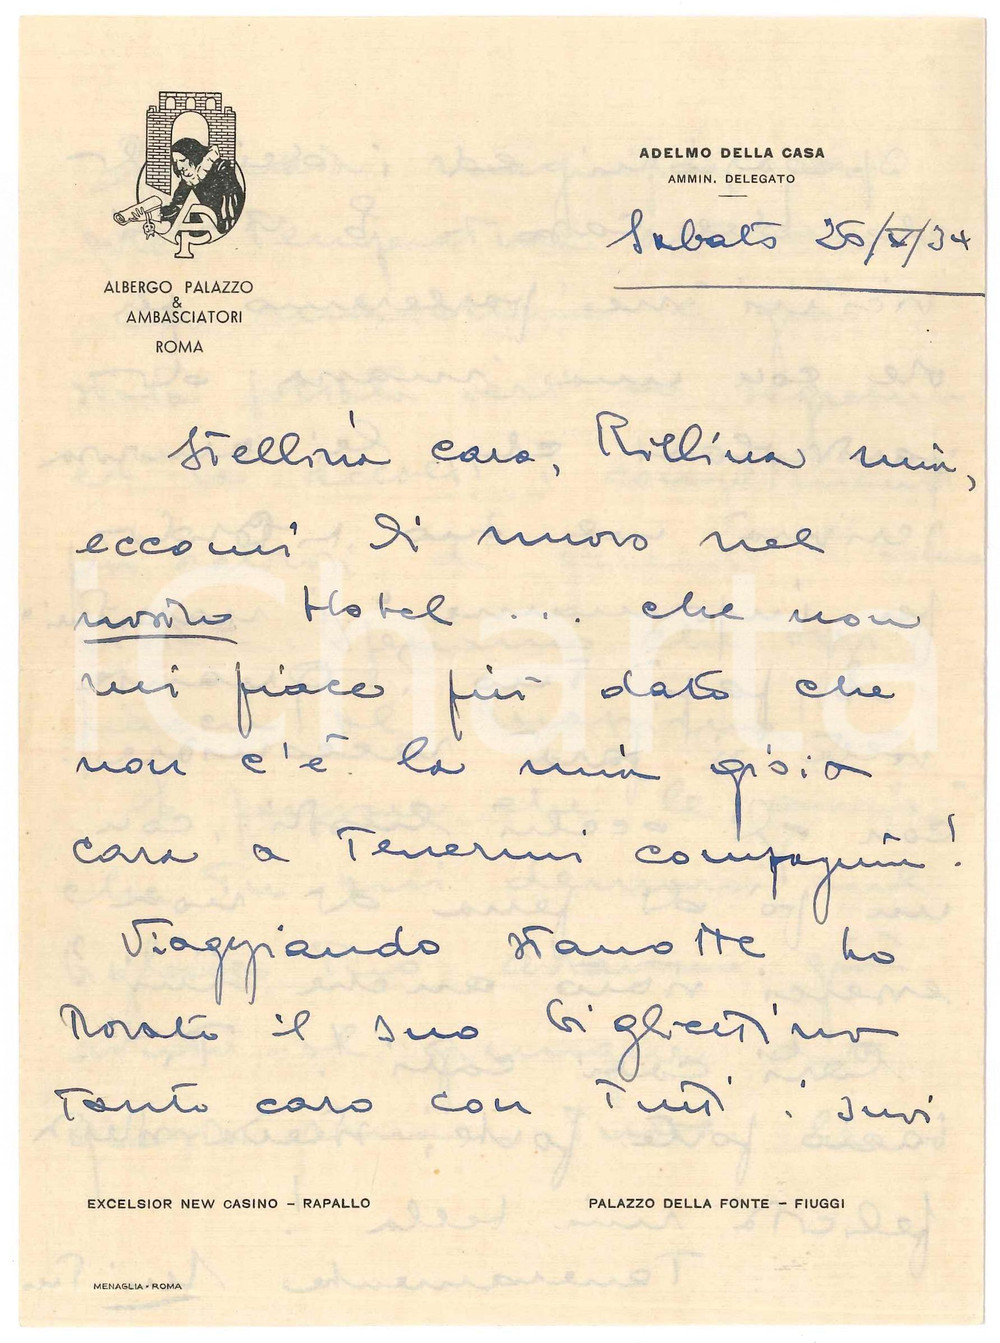 ADELMO DELLA CASA
AMMIN. DELEGATO
Sabato 26/V/34
AP
ALBERGO PALAZZO
&
AMBASCIATORI
ROMA
Stellina cara, Rillina mia,
eccomi di nuovo nel
nostro Hotel ... che non
mi piace più dato che
non c'è la mia gioia
cara a Tenermi compagnia!
Viaggiando stanotte ho
Trovato il suo bigliettino
Tanto caro con Tutti i suoi
EXCELSIOR NEW CASINO – RAPALLO
PALAZZO DELLA FONTE – FIUGGI
MENAGLIA - ROMA
iCharta